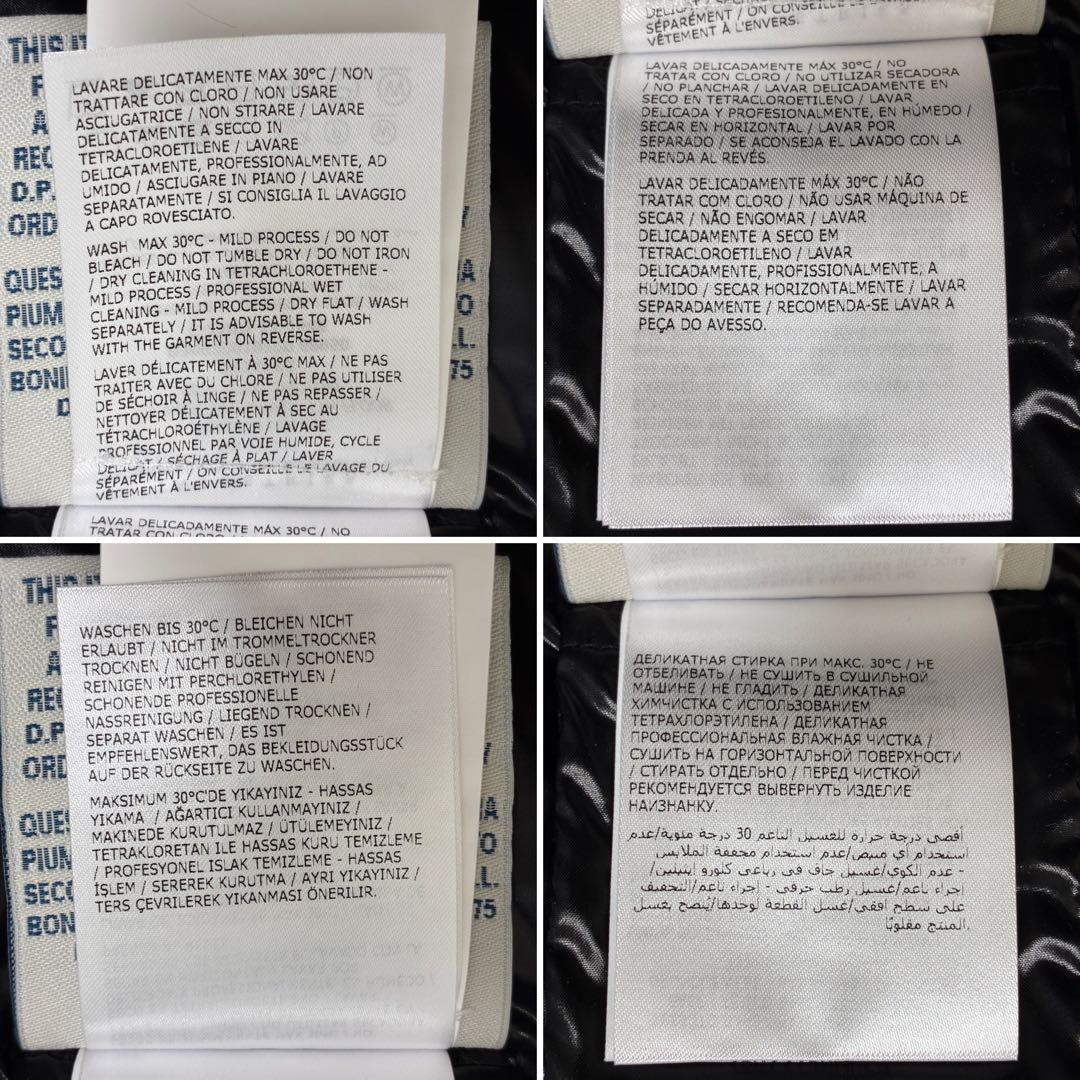 THIS
REC
D.P.
ORD
QUES
PIUM
SECO
BONI
75
LAVARE DELICATAMENTE MAX 30°C / NON
TRATTARE CON CLORO / NON USARE
ASCIUGATRICE / NON STIRARE / LAVARE
DELICATAMENTE A SECCO IN
TETRACLOROETILENE / LAVARE
DELICATAMENTE, PROFESSIONALMENTE, AD
UMIDO / ASCIUGARE IN PIANO / LAVARE
SEPARATAMENTE / SI CONSIGLIA IL LAVAGGIO
A CAPO ROVESCIATO.
WASH MAX 30°C - MILD PROCESS / DO NOT
BLEACH / DO NOT TUMBLE DRY / DO NOT IRON
/ DRY CLEANING IN TETRACHLOROETHENE -
MILD PROCESS / PROFESSIONAL WET
CLEANING - MILD PROCESS / DRY FLAT / WASH
SEPARATELY / IT IS ADVISABLE TO WASH
WITH THE GARMENT ON REVERSE.
LAVER DÉLICATEMENT À 30°C MAX / NE PAS
TRAITER AVEC DU CHLORE / NE PAS UTILISER
DE SÉCHOIR À LINGE / NE PAS REPASSER /
NETTOYER DÉLICATEMENT À SEC AU
TÉTRACHLOROÉTHYLÈNE / LAVAGE
PROFESSIONNEL PAR VOIE HUMIDE, CYCLE
DÉLICAT / SÉCHAGE À PLAT / LAVER
SÉPARÉMENT / ON CONSEILLE LE LAVAGE DU
VÊTEMENT À L'ENVERS.
LAVAR DELICADAMENTE MÁX 30°C / NO
TRATAR CON CLORO
SÉPARÉMENT / ON CONSEILLE
VÊTEMENT À L'ENVERS.
LAVAR DELICADAMENTE MÁX 30°C / NO
TRATAR CON CLORO / NO UTILIZAR SECADORA
/ NO PLANCHAR / LAVAR DELICADAMENTE EN
SECO EN TETRACLOROETILENO / LAVAR
DELICADA Y PROFESIONALMENTE, EN HÚMEDO /
SECAR EN HORIZONTAL / LAVAR POR
SEPARADO / SE ACONSEJA EL LAVADO CON LA
PRENDA AL REVÉS.
LAVAR DELICADAMENTE MÁX 30°C / NÃO
TRATAR COM CLORO / NÃO USAR MÁQUINA DE
SECAR / NÃO ENGOMAR / LAVAR
DELICADAMENTE A SECO EM
TETRACLOROETILENO / LAVAR
DELICADAMENTE, PROFISSIONALMENTE, A
HÚMIDO / SECAR HORIZONTALMENTE / LAVAR
SEPARADAMENTE / RECOMENDA-SE LAVAR A
PEÇA DO AVESSO.
THIS
REC
D.P.
ORD
QUES
PIUM
SECO
BON
75
WASCHEN BIS 30°C / BLEICHEN NICHT
ERLAUBT / NICHT IM TROMMELTROCKNER
TROCKNEN / NICHT BÜGELN / SCHONEND
REINIGEN MIT PERCHLORETHYLEN /
SCHONENDE PROFESSIONELLE
NASSREINIGUNG / LIEGEND TROCKNEN /
SEPARAT WASCHEN / ES IST
EMPFEHLENSWERT, DAS BEKLEIDUNGSSTÜCK
AUF DER RÜCKSEITE ZU WASCHEN.
MAKSIMUM 30°C'DE YIKAYINIZ - HASSAS
YIKAMA / AĞARTICI KULLANMAYINIZ /
MAKINEDE KURUTULMAZ / ÜTÜLEMEYINIZ /
TETRAKLORETAN ILE HASSAS KURU TEMIZLEME
/ PROFESYONEL ISLAK TEMIZLEME - HASSAS
İŞLEM / SEREREK KURUTMA / AYRI YIKAYINIZ /
TERS ÇEVRILEREK YIKANMASI ÖNERILIR.
ДЕЛИКАТНАЯ СТИРКА ПРИ МАКС. 30°C / НЕ
ОТБЕЛИВАТЬ / НЕ СУШИТЬ В СУШИЛЬНОЙ
МАШИНЕ / НЕ ГЛАДИТЬ / ДЕЛИКАТНАЯ
ХИМЧИСТКА С ИСПОЛЬЗОВАНИЕМ
ТЕТРАХЛОРЭТИЛЕНА / ДЕЛИКАТНАЯ
ПРОФЕССИОНАЛЬНАЯ ВЛАЖНАЯ ЧИСТКА /
СУШИТЬ НА ГОРИЗОНТАЛЬНОЙ ПОВЕРХНОСТИ
/ СТИРАТЬ ОТДЕЛЬНО / ПЕРЕД ЧИСТКОЙ
РЕКОМЕНДУЕТСЯ ВЫВЕРНУТЬ ИЗДЕЛИЕ
НАИЗНАНКУ.
أقصى درجة حرارة للغسيل الناعم 30 درجة مئوية/عدم
استخدام أي مبيض/عدم استخدام مجففة الملابس
- عدم الكوي/غسيل جاف في رباعي كلورو إيثيلين/
إجراء ناعم/غسيل رطب حرفي - إجراء ناعم/التجفيف
على سطح أفقي/غسل القطعة لوحدها/يُنصح بغسل
المنتج مقلوبًا.